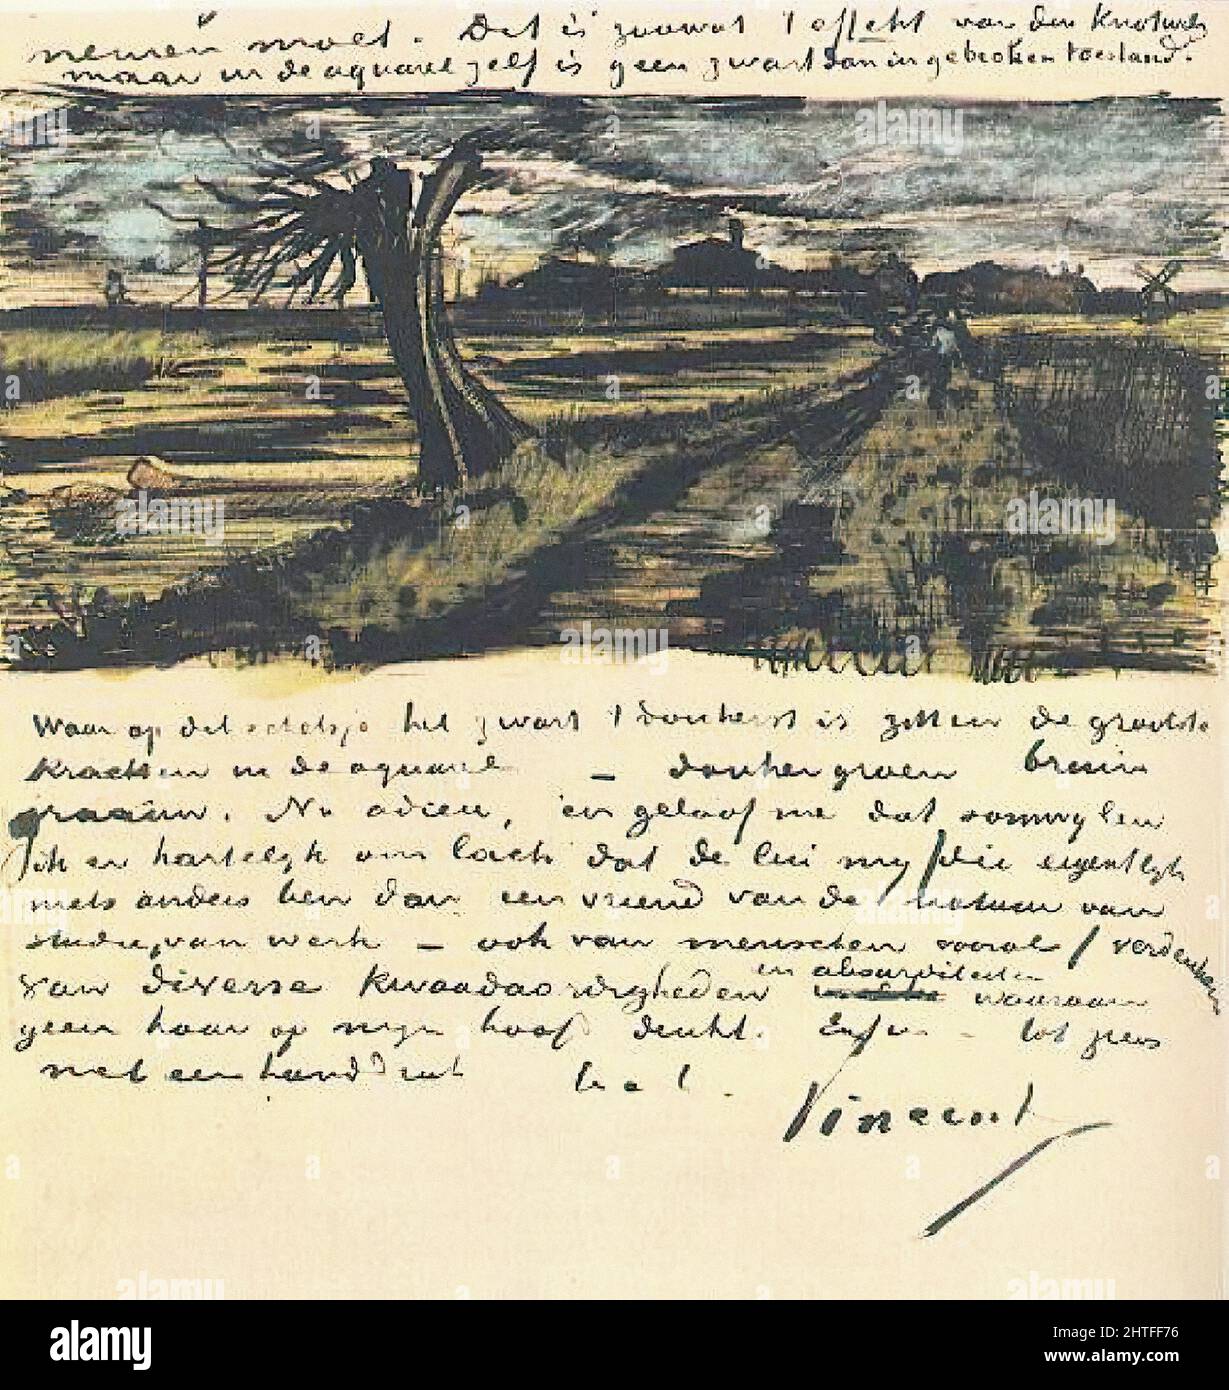 nemen moet. Dat is zoowat 't effekt van den Knotwilg
maar in de aquarel zelf is geen zwart dan in gebroken toestand.
Waar op dit schetsje het zwart 't donkerst is zitten de grootste
krachten in de aquarel – donkergroen bruin
graauw. Nu adieu, en geloof me dat somwylen
ik er hartelyk om lach dat de lui my die eigentlyk
niets anders ben dan een vriend van de natuur van
studie, van werk – ook van menschen vooral / verdenken
van diverse kwaadaardigheden en absurditeiten waaraan
geen haar op myn hoofd denkt. Enfin – tot ziens
met een handdruk
Vincent
alamy
Image ID: 2HTFF76
www.alamy.com